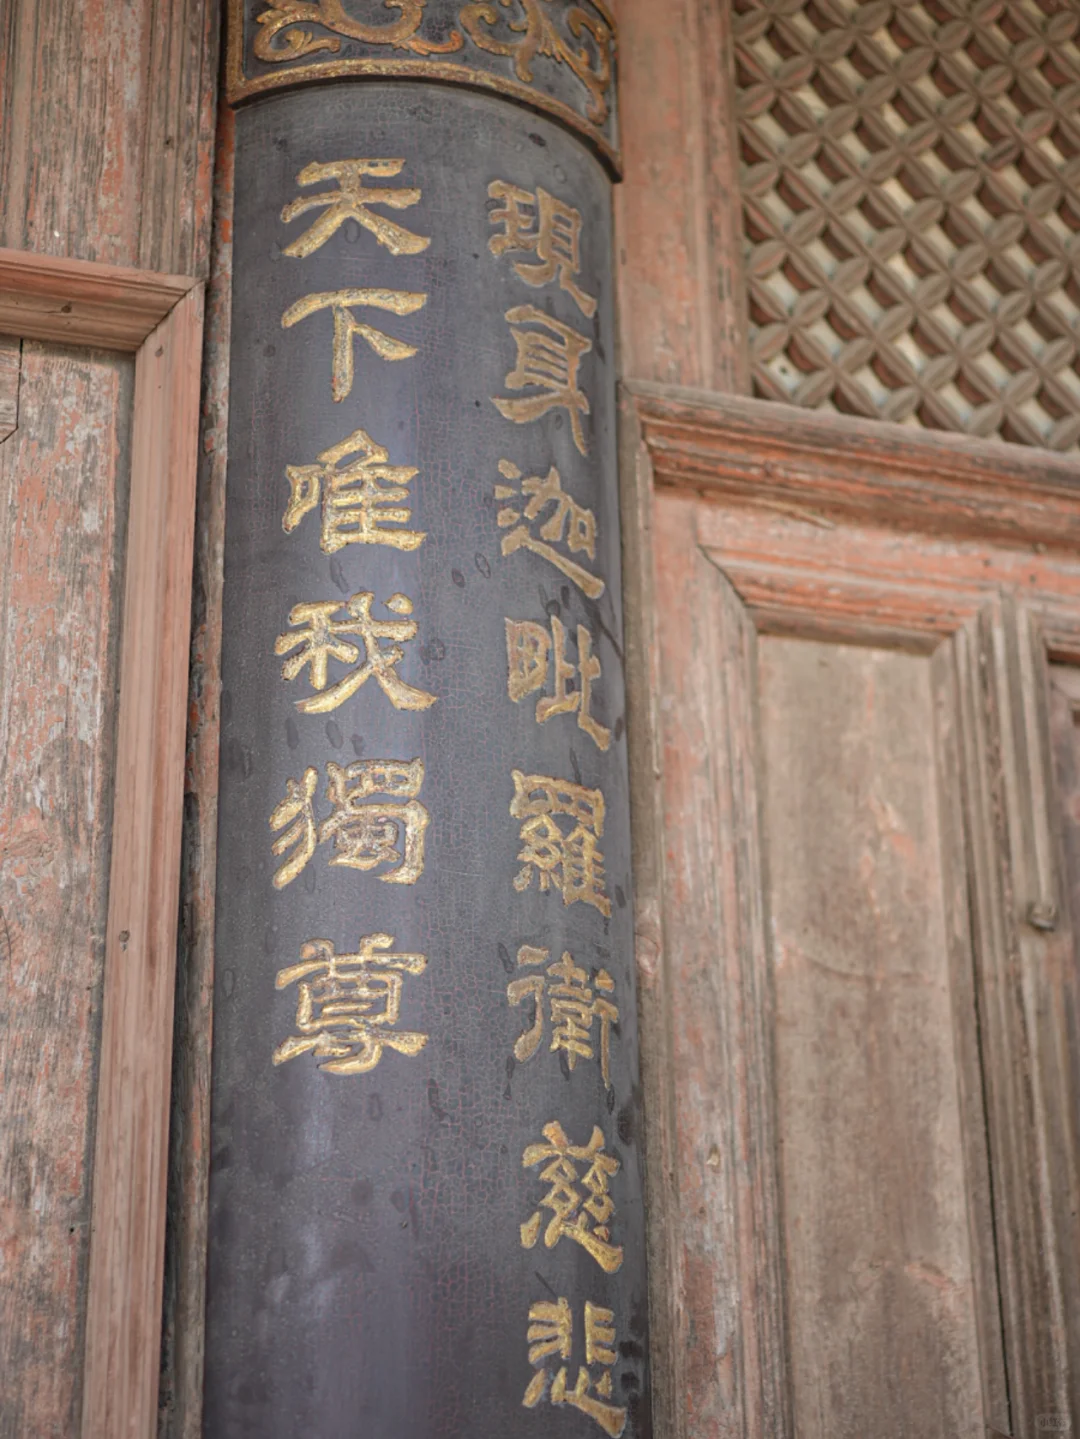 現身迦毗羅衛慈悲
天下唯我獨尊